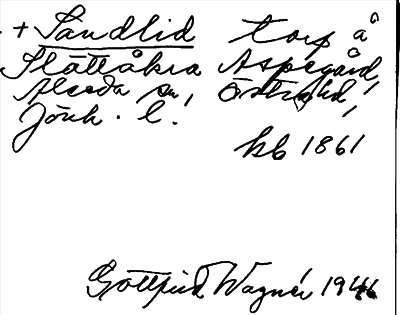 + Sandlid torp å
Slättåkra Aspegård,
Alseda sn, Östra hd,
Jönk. l.
kb 1861
Gottfrid Wagnér 1946